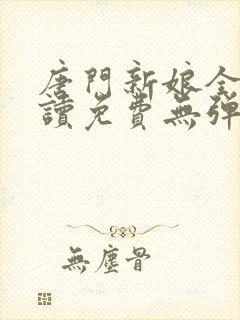 唐門新娘全
讀免費無彈
無塵骨